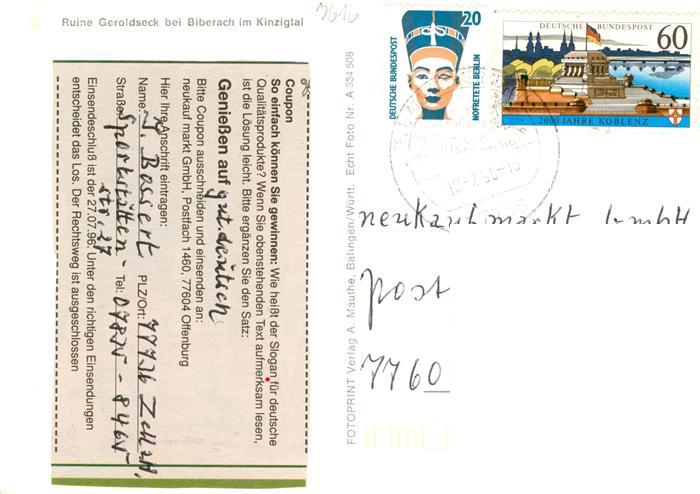 Ruine Geroldseck bei Biberach im Kinzigtal
3616
Coupon
So einfach können Sie gewinnen: Wie heißt der Slogan für deutsche
Qualitätsprodukte? Wenn Sie obenstehenden Text aufmerksam lesen,
ist die Lösung leicht. Bitte ergänzen Sie den Satz:
Genießen auf gut deutsch
Bitte Coupon ausschneiden und einsenden an:
neukauf markt GmbH, Postfach 1460, 77604 Offenburg
Hier Ihre Anschrift eintragen:
Name: J. Bassert PLZ/Ort: 77736 Zell a.H.
Straße: Sportstätten- Tel: 07835 - 8465
str. 27
Einsendeschluß ist der 27.07.96. Unter den richtigen Einsendungen
entscheidet das Los. Der Rechtsweg ist ausgeschlossen
FOTOPRINT Verlag A. Mauthe, Balingen/Württ. Echt Foto Nr. A 334 508
DEUTSCHE BUNDESPOST
20
NOFRETETE BERLIN
DEUTSCHE BUNDESPOST
60
2000 JAHRE KOBLENZ
neukaufmarkt GmbH
Post
7760